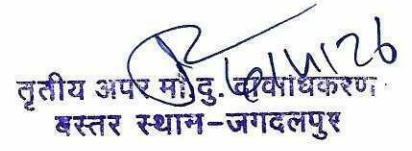 तृतीय अपर मो. दु. दावाधिकरण
बस्तर स्थान-जगदलपुर